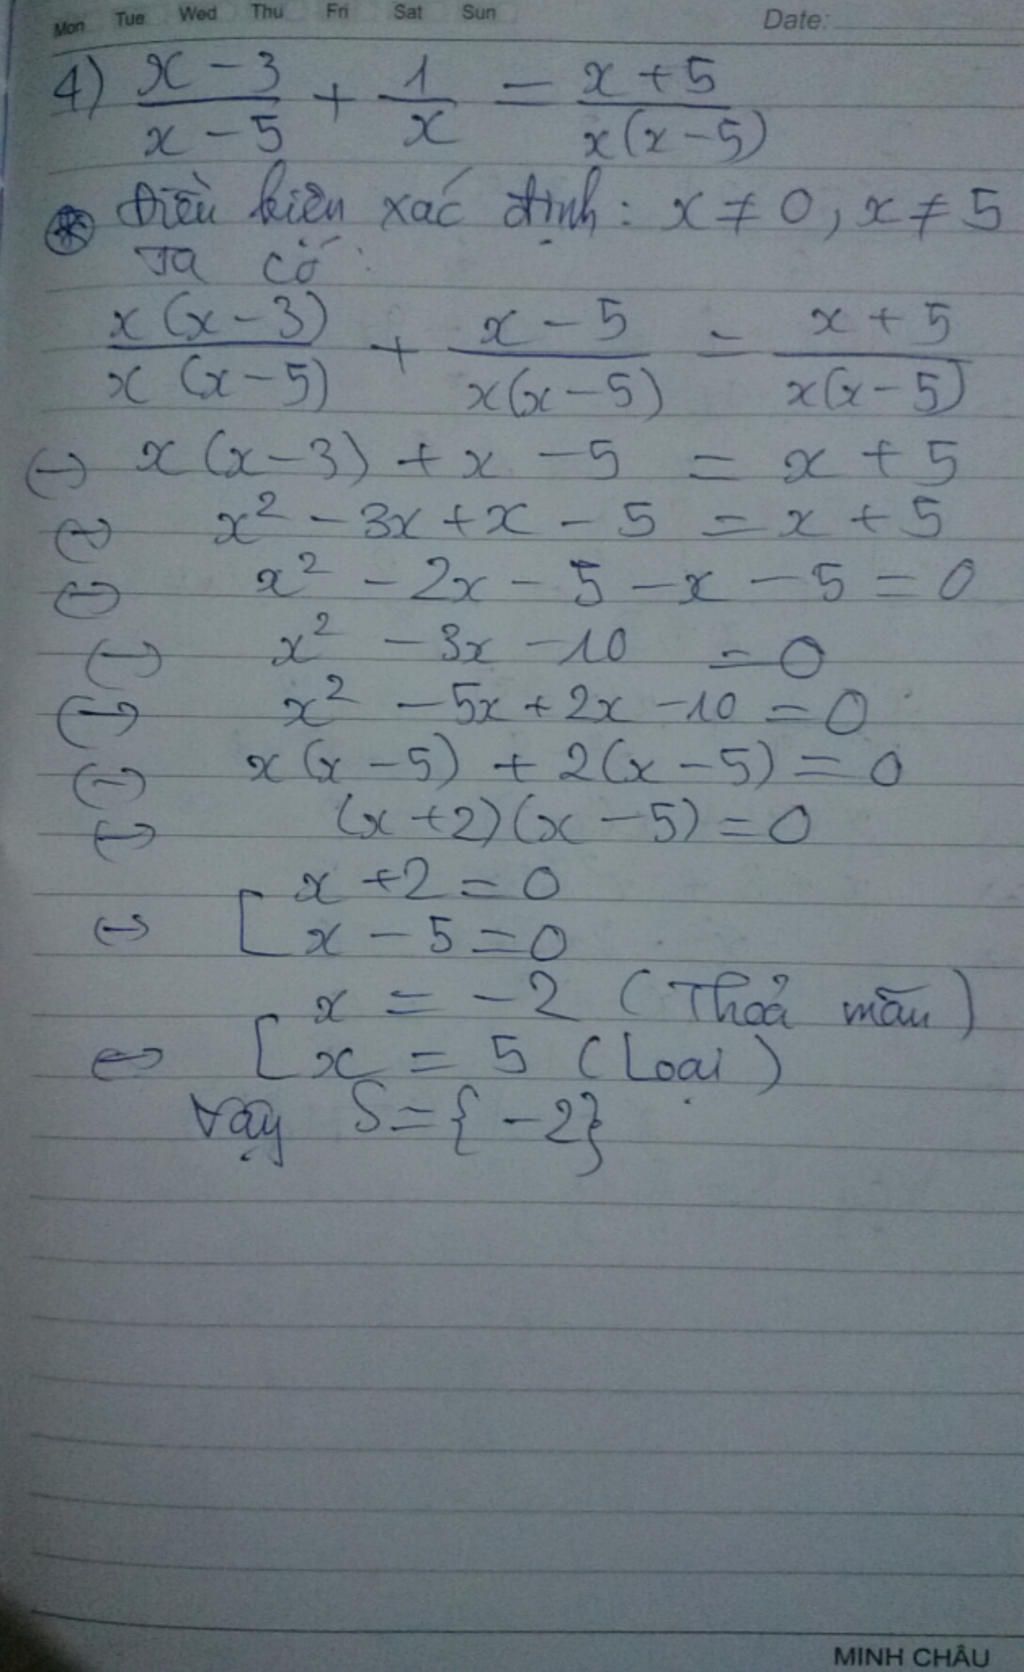 Mon Tue Wed Thu Fri Sat Sun Date:
4) \frac{x-3}{x-5} + \frac{1}{x} = \frac{x+5}{x(x-5)}
⊛ Điều kiện xác định: x ≠ 0, x ≠ 5
Ta có:
\frac{x(x-3)}{x(x-5)} + \frac{x-5}{x(x-5)} = \frac{x+5}{x(x-5)}
⇔ x(x-3) + x - 5 = x + 5
⇔ x² - 3x + x - 5 = x + 5
⇔ x² - 2x - 5 - x - 5 = 0
⇔ x² - 3x - 10 = 0
⇔ x² - 5x + 2x - 10 = 0
⇔ x(x-5) + 2(x-5) = 0
⇔ (x+2)(x-5) = 0
⇔ [ x + 2 = 0
x - 5 = 0
⇔ [ x = -2 (Thoả mãn)
x = 5 (Loại)
Vậy S = {-2}
MINH CHÂU